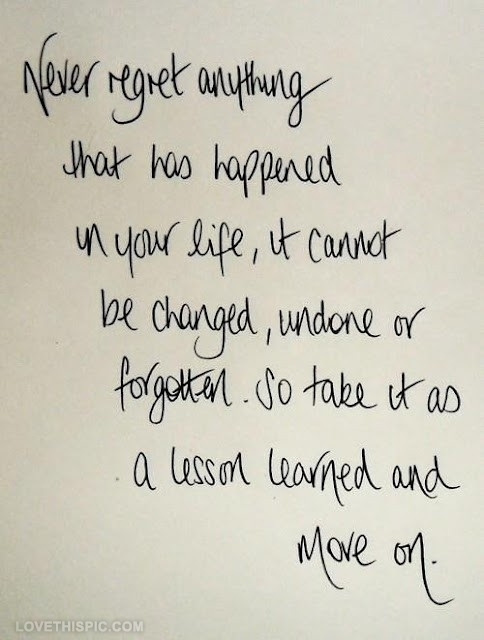 Never regret anything
that has happened
in your life, it cannot
be changed, undone or
forgotten. So take it as
a lesson learned and
move on.
LOVETHISPIC.COM